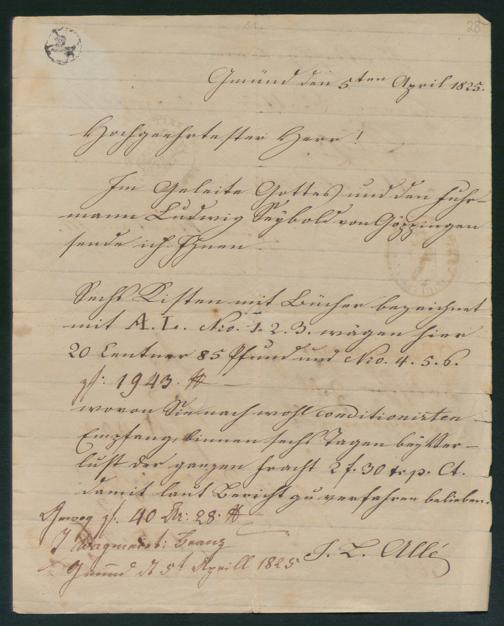 28
Gmünd den 5ten April 1825.
Hochgeehrtester Herr!
Im Geleite Gottes und den Fuhr-
mann Ludwig Seybold von Göppingen
sende ich Ihnen
Sechs Kisten mit Bücher bezeichnet
mit A. L. Nro. 1. 2. 3. wägen hier
20 Centner 85 Pfund und Nro. 4. 5. 6.
1943 ℔
wovon Sie nach wohl conditionirten
Empfang, binnen sechs Tagen bey Ver-
lust der ganzen Fracht 2 f. 30 xr. p. Ct.
damit laut Bericht zu verfahren belieben.
40 Ctr: 28 ℔
J. L. Allé
Gmünd d 5t Aprill 1825